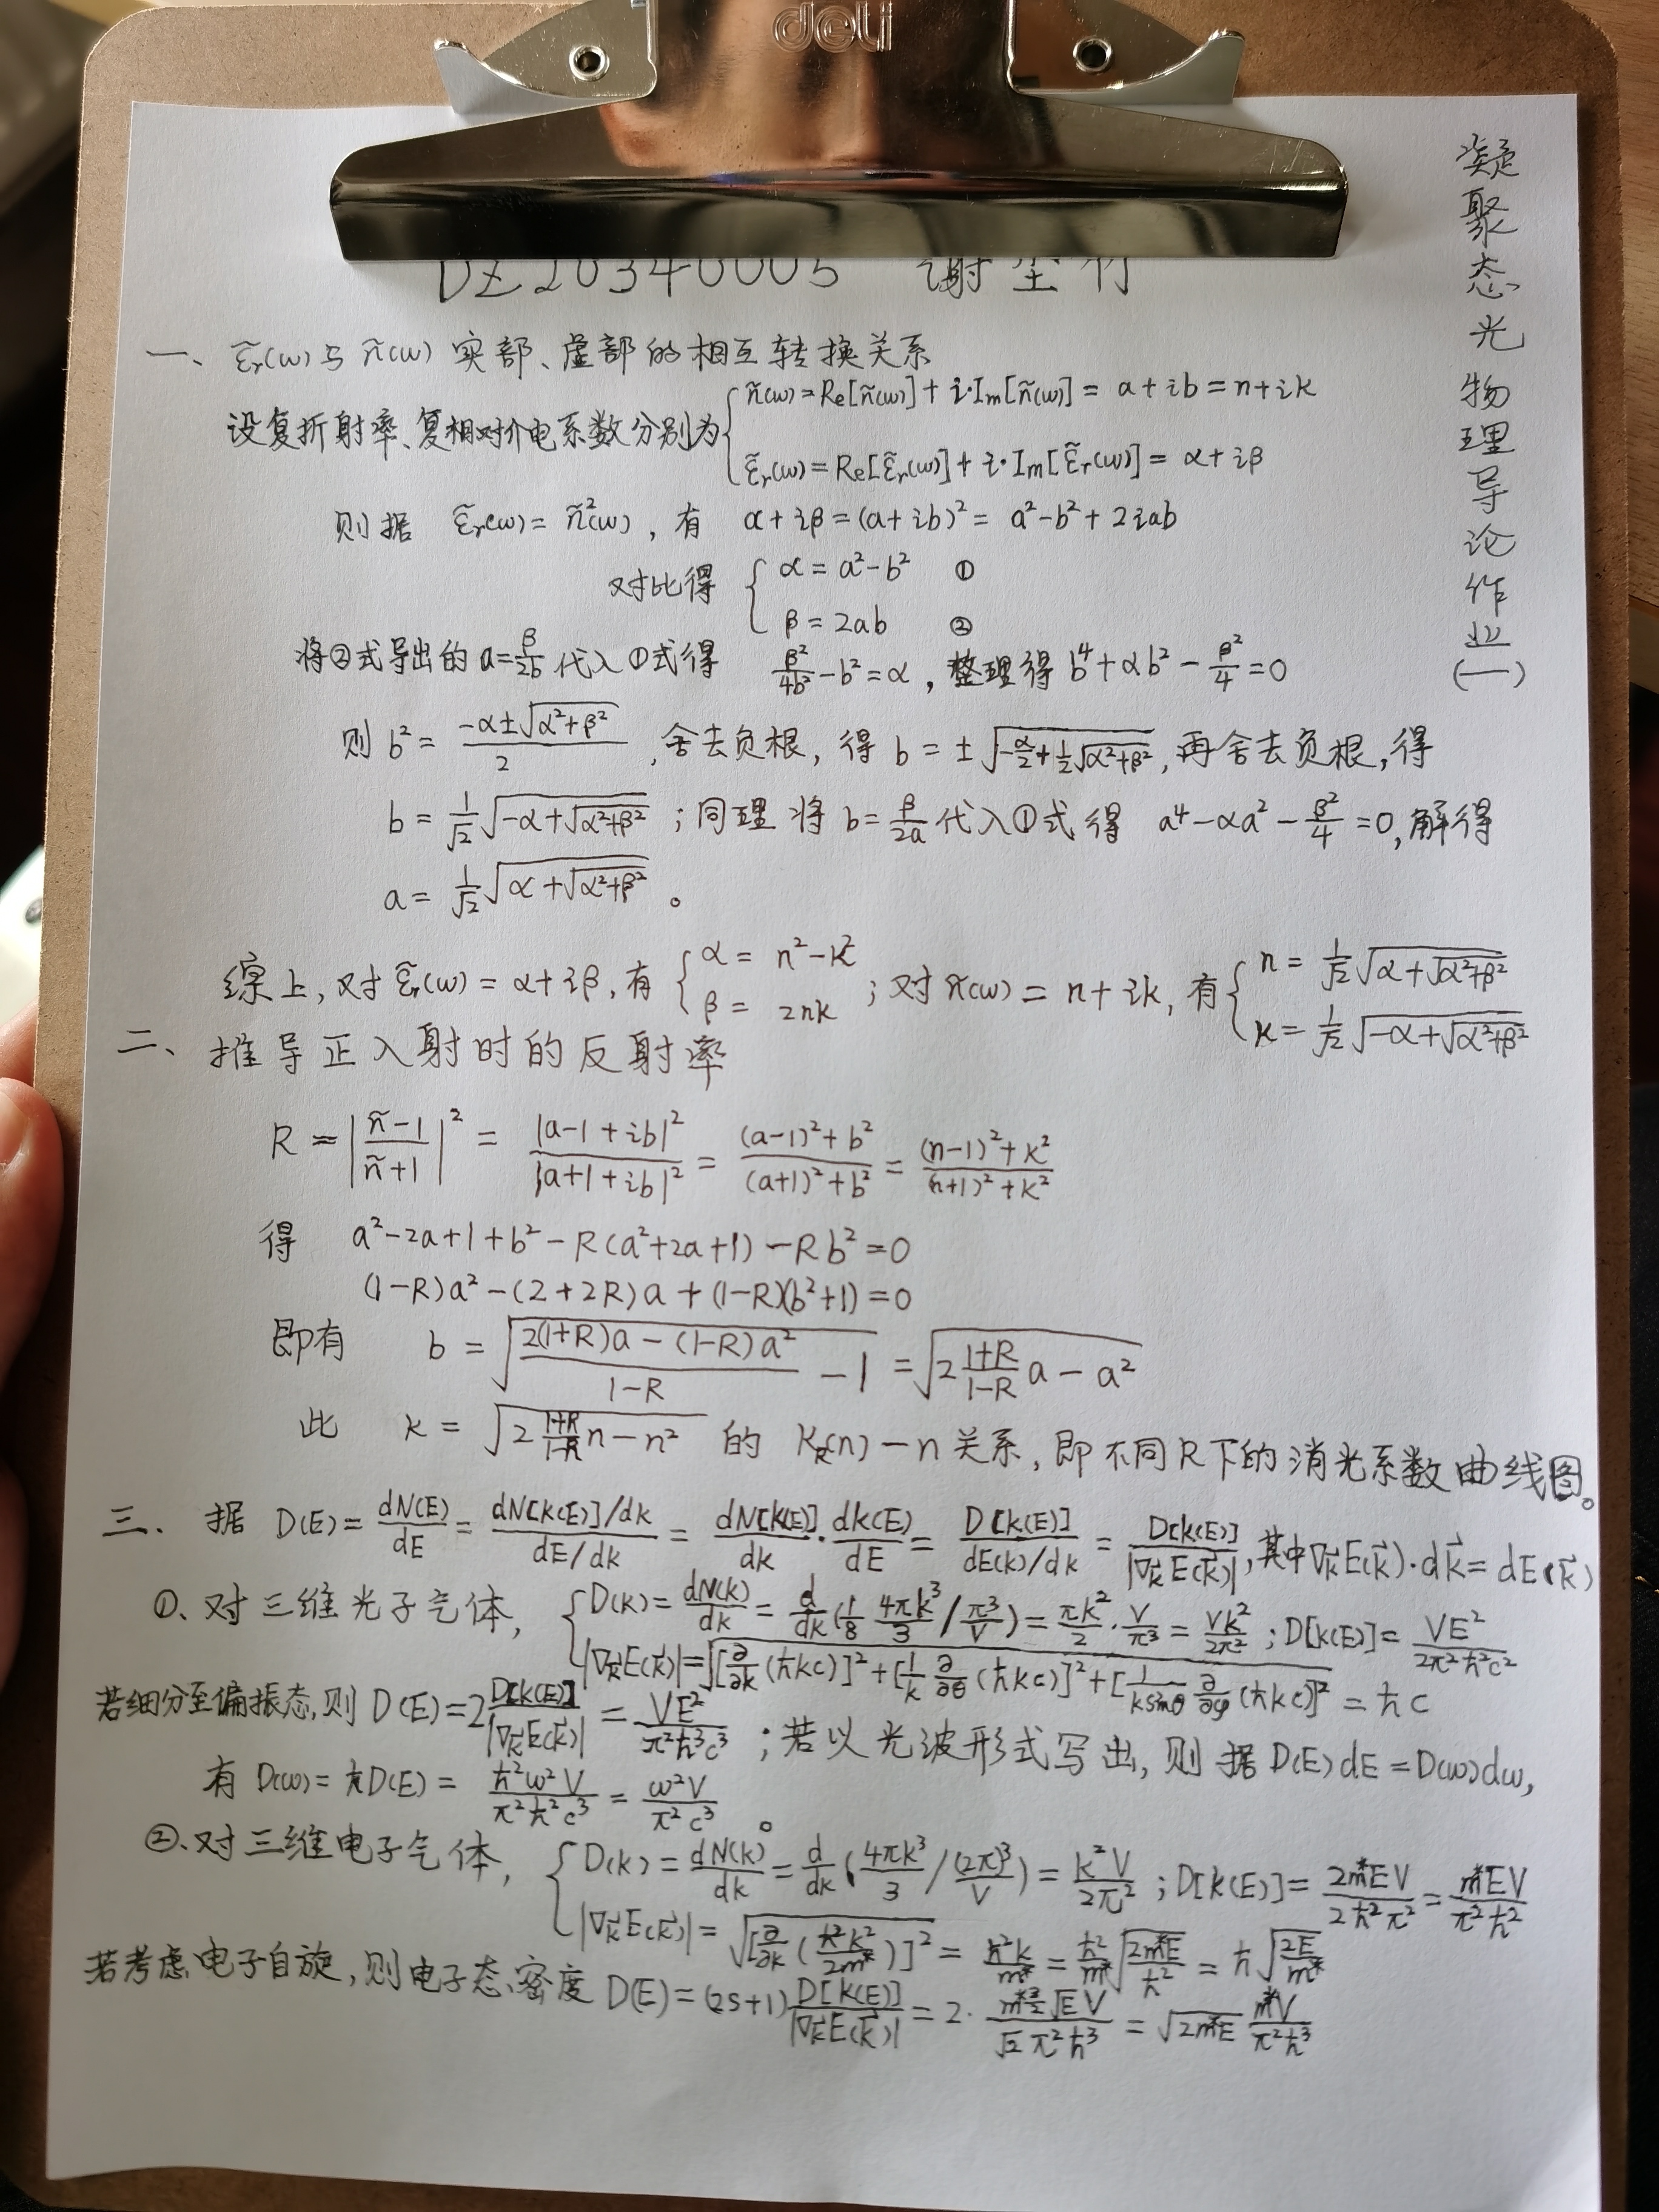 deli
凝聚态光物理导论作业(一)
DZ20340005 谢尘竹
一、ε̃r(ω)与ñ(ω)实部、虚部的相互转换关系
设复折射率、复相对介电系数分别为 { ñ(ω)=Re[ñ(ω)]+i·Im[ñ(ω)]=a+ib=n+iκ
ε̃r(ω)=Re[ε̃r(ω)]+i·Im[ε̃r(ω)]=α+iβ
则据 ε̃r(ω)=ñ²(ω),有 α+iβ=(a+ib)²=a²-b²+2iab
对比得 { α=a²-b² ①
β=2ab ②
将②式导出的a=β/2b代入①式得 β²/4b²-b²=α,整理得b⁴+αb²-β²/4=0
则b²=(-α±√(α²+β²))/2,舍去负根,得b=±√(-α/2+½√(α²+β²)),再舍去负根,得
b=1/√2 √(-α+√(α²+β²));同理将b=β/2a代入①式得 a⁴-αa²-β²/4=0,解得
a=1/√2 √(α+√(α²+β²))。
综上,对ε̃r(ω)=α+iβ,有 { α=n²-κ² β=2nκ ;对ñ(ω)=n+iκ,有 { n=1/√2 √(α+√(α²+β²))
κ=1/√2 √(-α+√(α²+β²))
二、推导正入射时的反射率
R=|(ñ-1)/(ñ+1)|²=|a-1+ib|²/|a+1+ib|²=((a-1)²+b²)/((a+1)²+b²)=((n-1)²+κ²)/((n+1)²+κ²)
得 a²-2a+1+b²-R(a²+2a+1)-Rb²=0
(1-R)a²-(2+2R)a+(1-R)(b²+1)=0
即有 b=√((2(1+R)a-(1-R)a²)/(1-R) -1)=√(2(1+R)/(1-R) a-a²)
此 κ=√(2(1+R)/(1-R) n-n²) 的 κR(n)-n关系,即不同R下的消光系数曲线图。
三、据 D(E)=dN(E)/dE=(dN[k(E)]/dk)/(dE/dk)=dN[k(E)]/dk·dk(E)/dE=D[k(E)]/(dE(k)/dk)=D[k(E)]/|∇k⃗E(k⃗)|,其中∇k⃗E(k⃗)·dk⃗=dE(k⃗)
①、对三维光子气体, { D(k)=dN(k)/dk=d/dk(1/8 4πk³/3/π³/V)=πk²/2·V/π³=Vk²/2π²;D[k(E)]=VE²/2π²ħ²c²
|∇k⃗E(k⃗)|=√([∂/∂k(ħkc)]²+[1/k ∂/∂θ(ħkc)]²+[1/ksinθ ∂/∂φ(ħkc)]²)=ħc
若细分至偏振态,则D(E)=2D[k(E)]/|∇k⃗E(k⃗)|=VE²/π²ħ³c³;若以光波形式写出,则据D(E)dE=D(ω)dω,
有D(ω)=ħD(E)=ħ²ω²V/π²ħ²c³=ω²V/π²c³。
②、对三维电子气体, { D(k)=dN(k)/dk=d/dk(4πk³/3/(2π)³/V)=k²V/2π²;D[k(E)]=2m*EV/2ħ²π²=m*EV/π²ħ²
|∇k⃗E(k⃗)|=√([∂/∂k(ħ²k²/2m*)]²)=ħ²k/m*=ħ²/m*√(2m*E/ħ²)=ħ√(2E/m*)
若考虑电子自旋,则电子态密度D(E)=(2s+1)D[k(E)]/|∇k⃗E(k⃗)|=2·m*^(3/2)√E V/√2π²ħ³=√(2m*E) m*V/π²ħ³